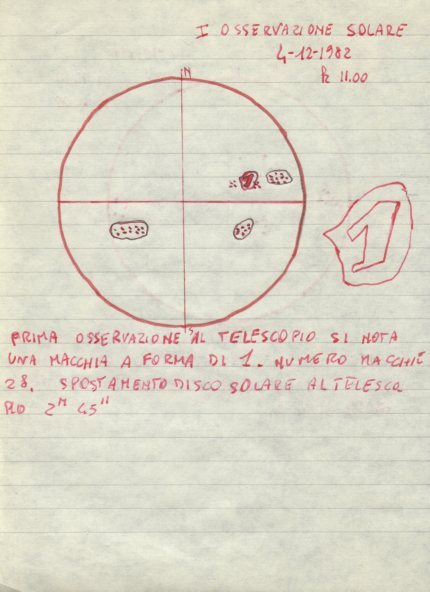 I OSSERVAZIONE SOLARE
4-12-1982
h 11.00
N
1
S
PRIMA OSSERVAZIONE AL TELESCOPIO SI NOTA
UNA MACCHIA A FORMA DI 1. NUMERO MACCHIE
28. SPOSTAMENTO DISCO SOLARE AL TELESCO
PIO 2M 45"